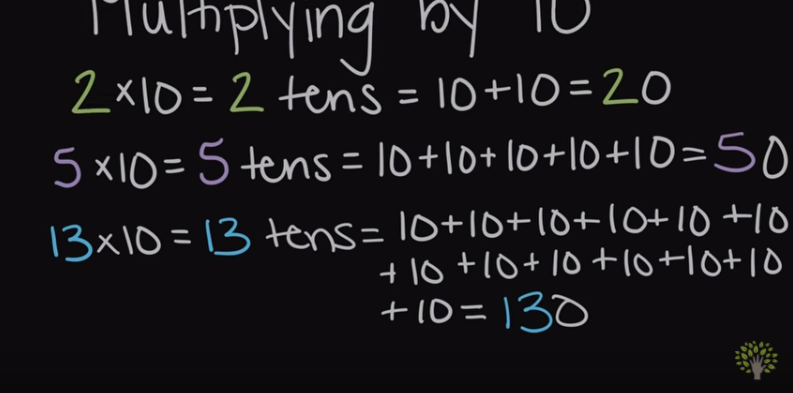 Multiplying by 10
2×10 = 2 tens = 10+10=20
5×10= 5 tens = 10+10+10+10+10=50
13×10 = 13 tens= 10+10+10+10+10+10
+10+10+10+10+10+10
+10= 130